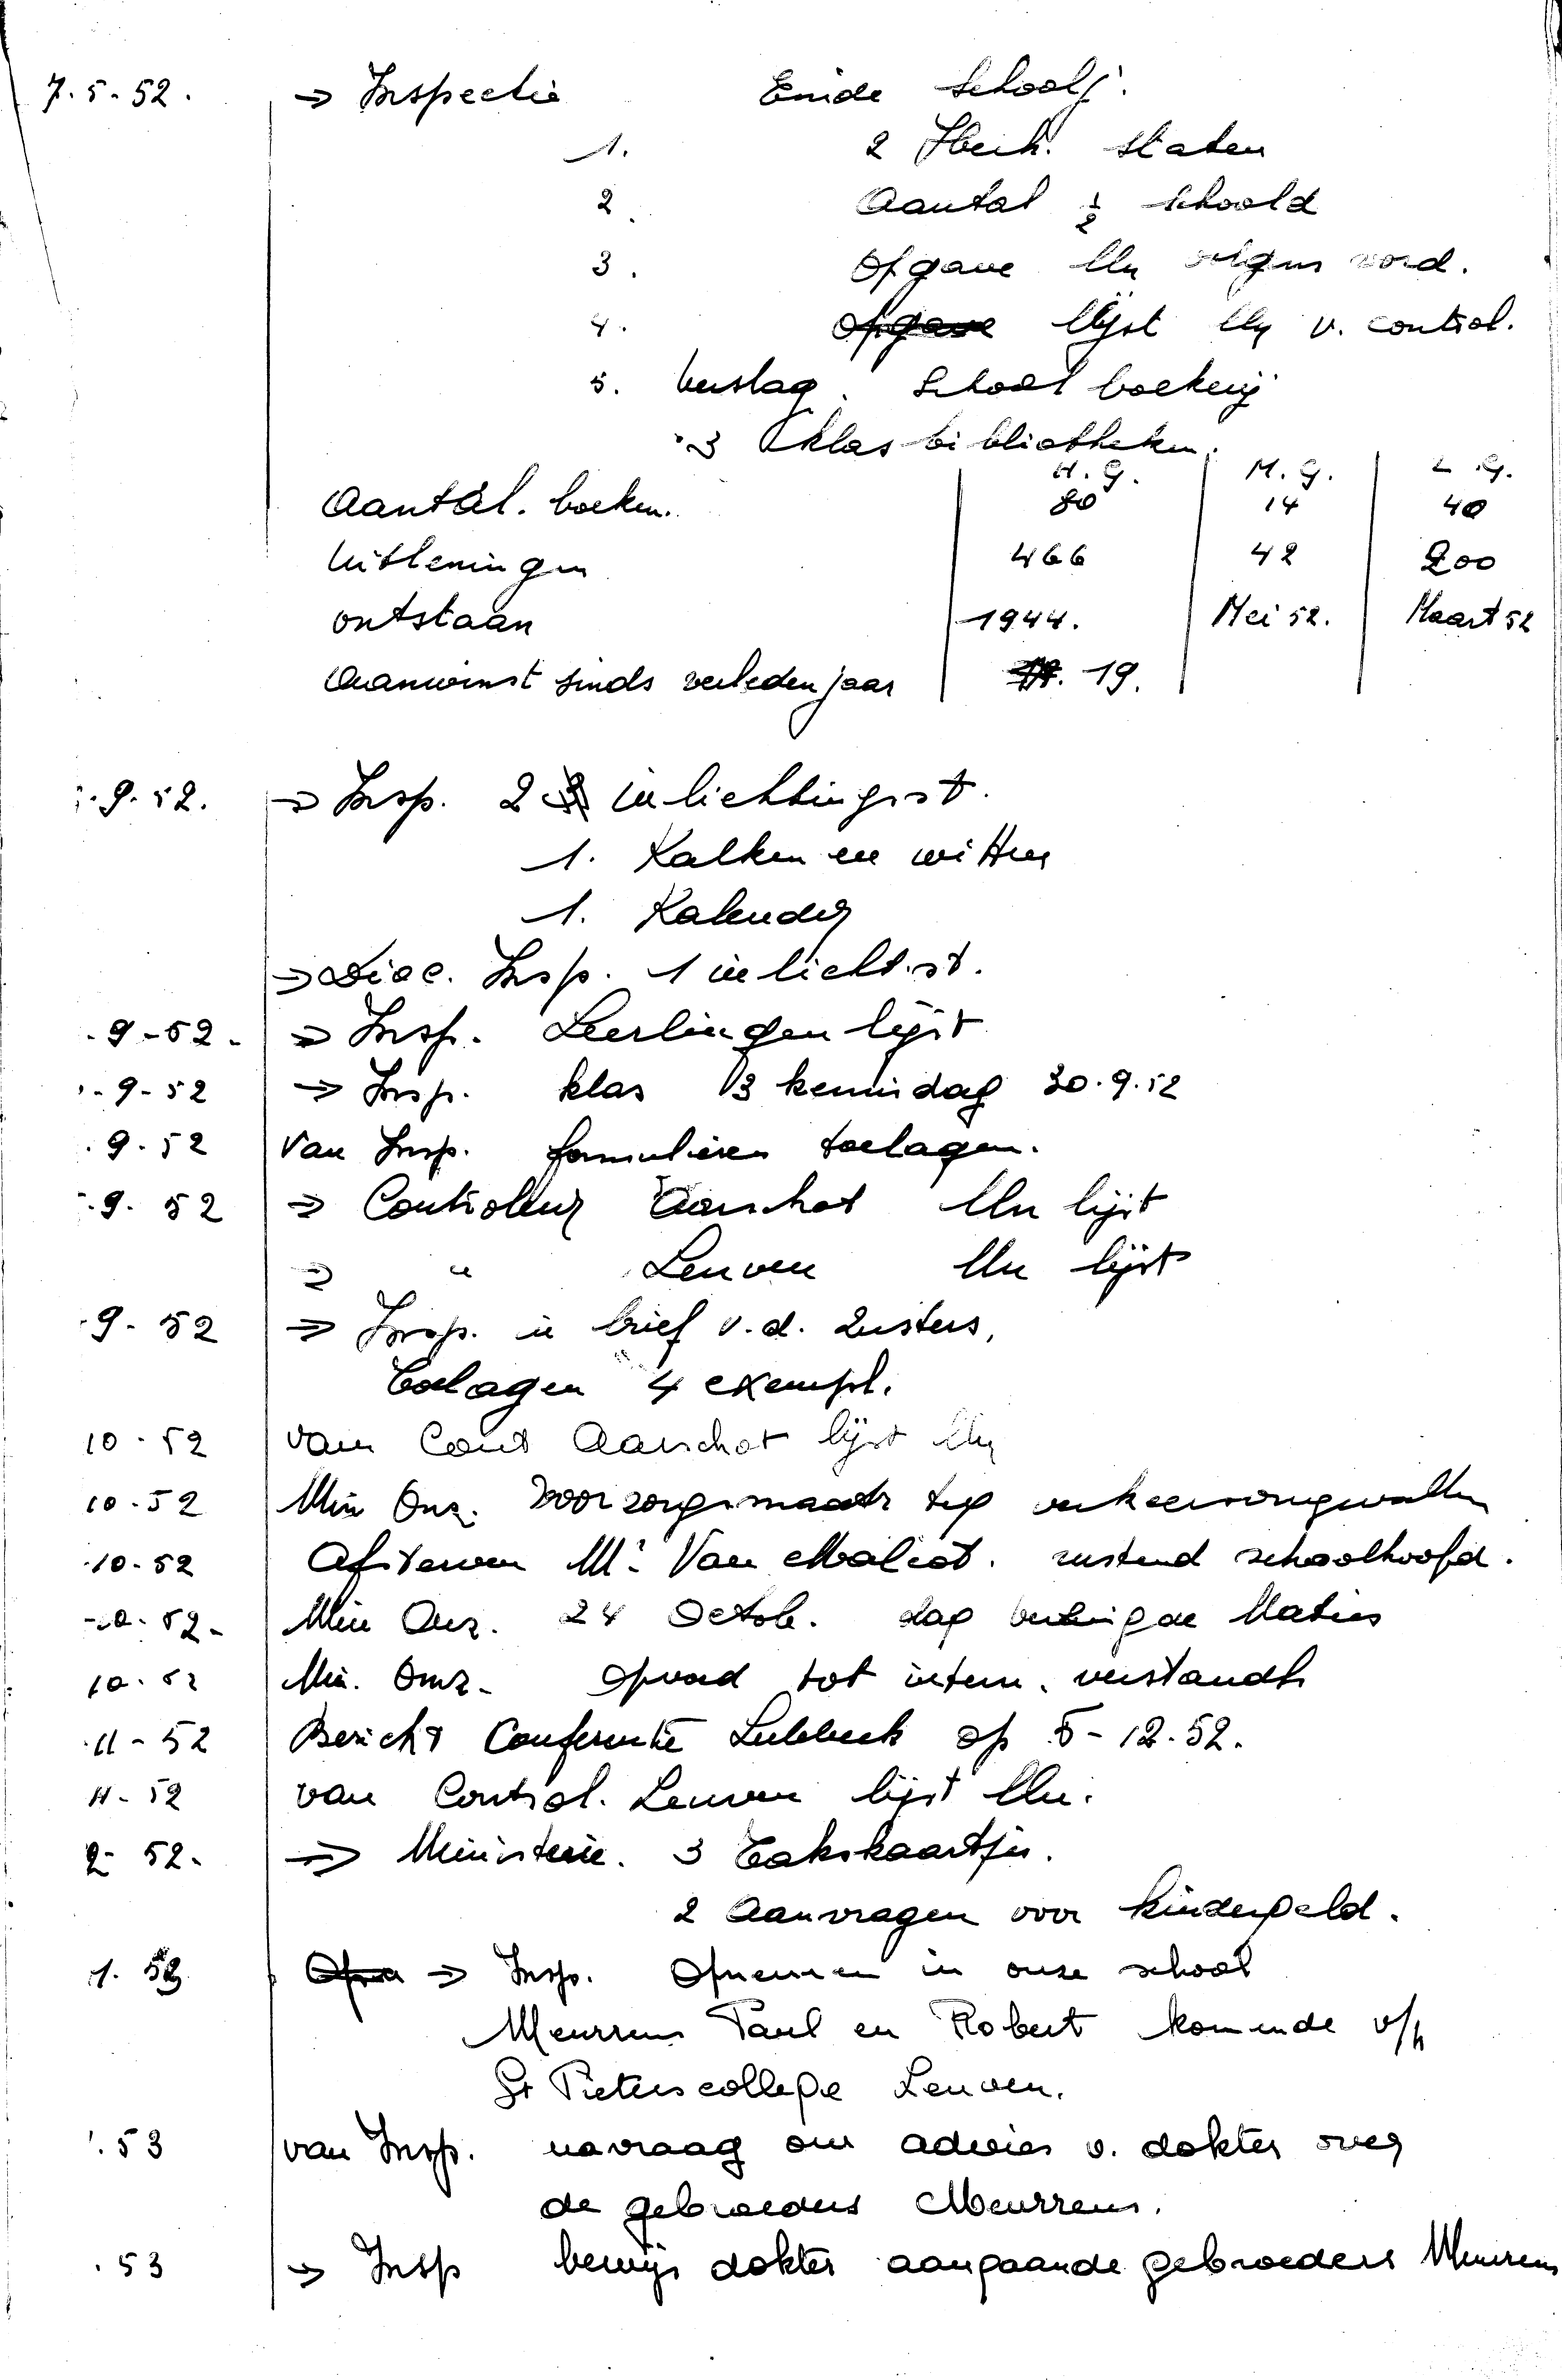 7.5.52. → Inspectie Einde schoolj.
1. 2 staten
2. Aantal ½ schoold
3. Opgave lln volgens vord.
4. Opgave lijst lln v. control.
5. Verslag. School boekerij
3 klasbibliotheken.
H.G. M.G. L.G.
Aantal. boeken. 80 14 40
Uitleningen 466 42 200
ontstaan 1944. Mei 52. Maart 52
Aanwinst sinds verleden jaar 19.
.9.52. → Insp. 2 inlichtingsst.
1. Kalken en witten
1. Kalender
→ Dioc. Insp. 1 inlicht.st.
.9-52. → Insp. Leerlingenlijst
.-9-52 → Insp. klas 3 kermisdag 30.9.52
.9.52 Van Insp. formulieren toelagen.
.9.52 → Controleur Aarschot lln lijst
→ " Leuven lln lijst
.9-52 → Insp. in brief v.d. Zusters,
Toelagen 4 exempl.
10-52 van Cont Aarschot lijst lln
10.52 Min Onz. Voorzorgsmaatr teg verkeersongevallen
.10-52 Afsterven Mr. Van rustend schoolhoofd.
10.52. Min Onz. 24 Octob. dag Naties
10.52 Min. Onz. Opvoed tot intern. verstandh
.11-52 Bericht Conferentie Lubbeek op 5-12.52.
11-52 van Control. Leuven lijst lln.
2-52. → Ministerie. 3 Takskaartjes.
2 Aanvragen voor kindergeld.
1.53 → Insp. Opnemen in onze school
Meurrens Paul en Robert komende v/h
St Pieterscollege Leuven.
.53 van Insp. navraag om advies v. dokter over
de gebroeders Meurrens.
.53 → Insp bewijs dokter aangaande gebroeders Meurrens